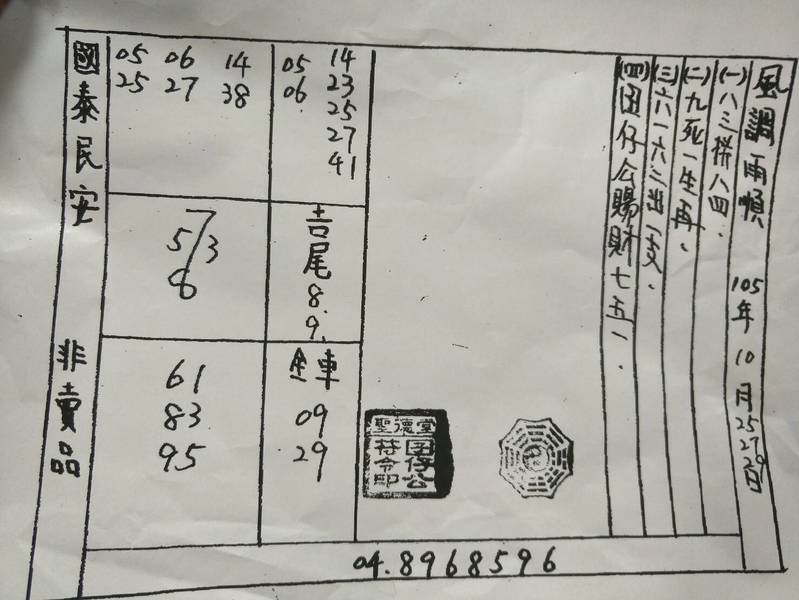 風調雨順 105年10月25 27 29日
(一)八三拼八四.
(二)九死一生再.
(三)六一六三出一支.
(四)囝仔公賜財七五一.
14
23
25
27
41
05
06
吉尾8.9.
全車
09
29
05 06 14
25 27 38
7
5/3
8
61
83
95
國泰民安 非賣品
聖德堂
囝仔公
符令印
04.8968596